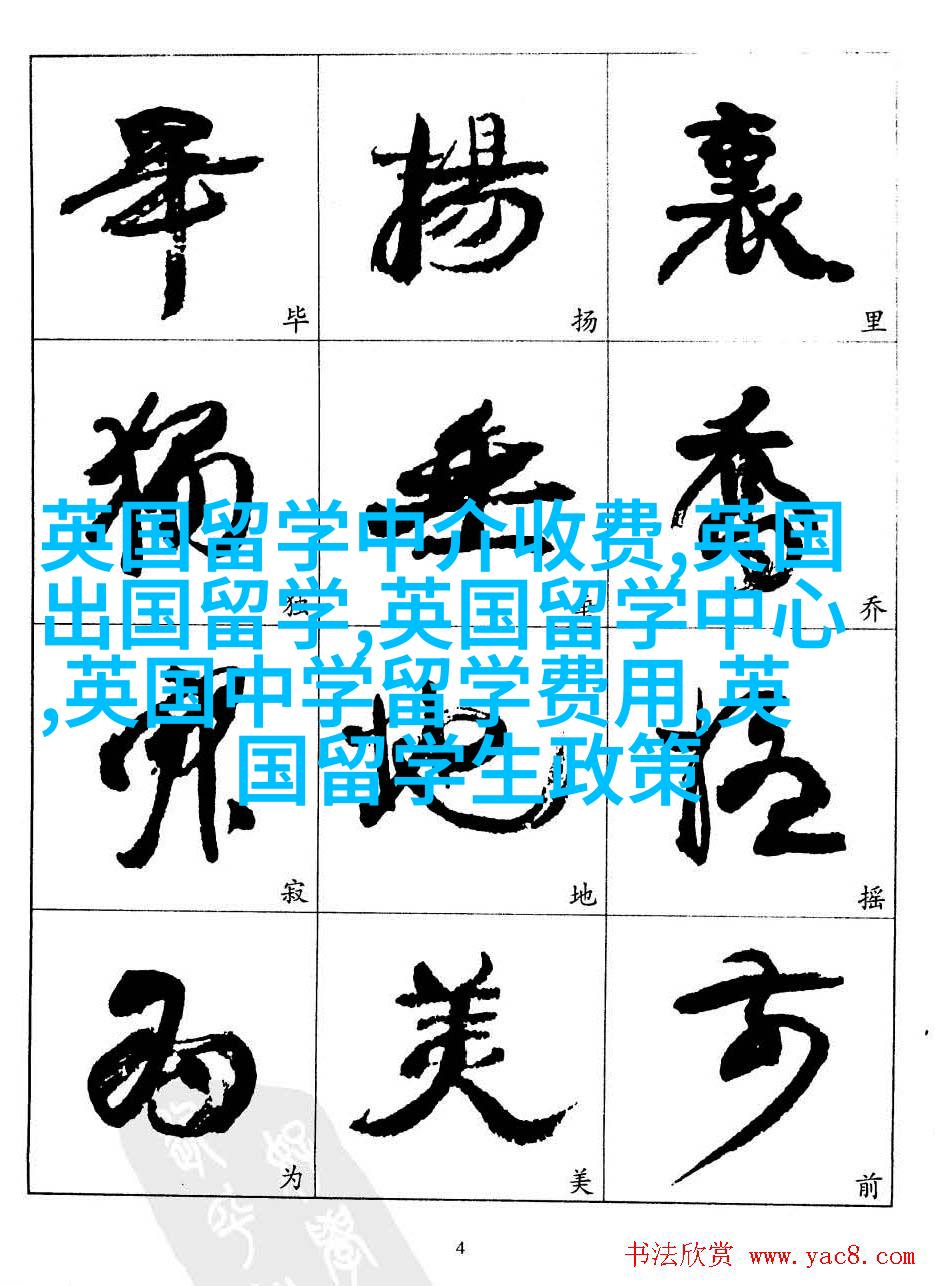 畢 揚 裏
毕 扬 里
獨 垂 喬
英国留学中介收费,英国
出国留学,英国留学中心
,英国中学留学费用,英
国留学生政策
独 垂 乔
寂 地 摇
寂 地 摇
为 美 前
为 美 前
4
书法欣赏 www.yac8.com